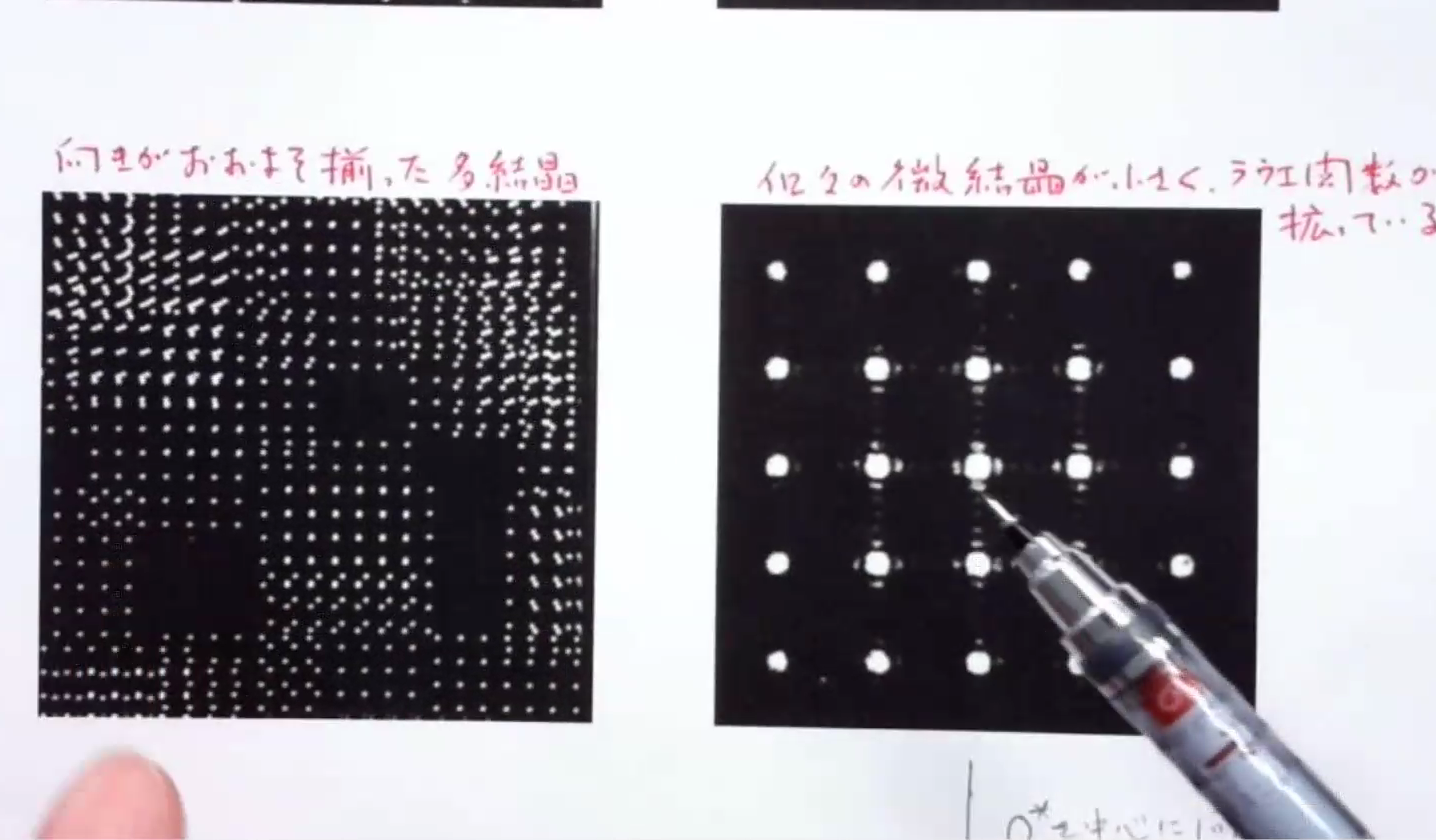 向きがおおよそ揃った多結晶
個々の微結晶が小さく、ラウエ関数が
拡っている
O*を中心に